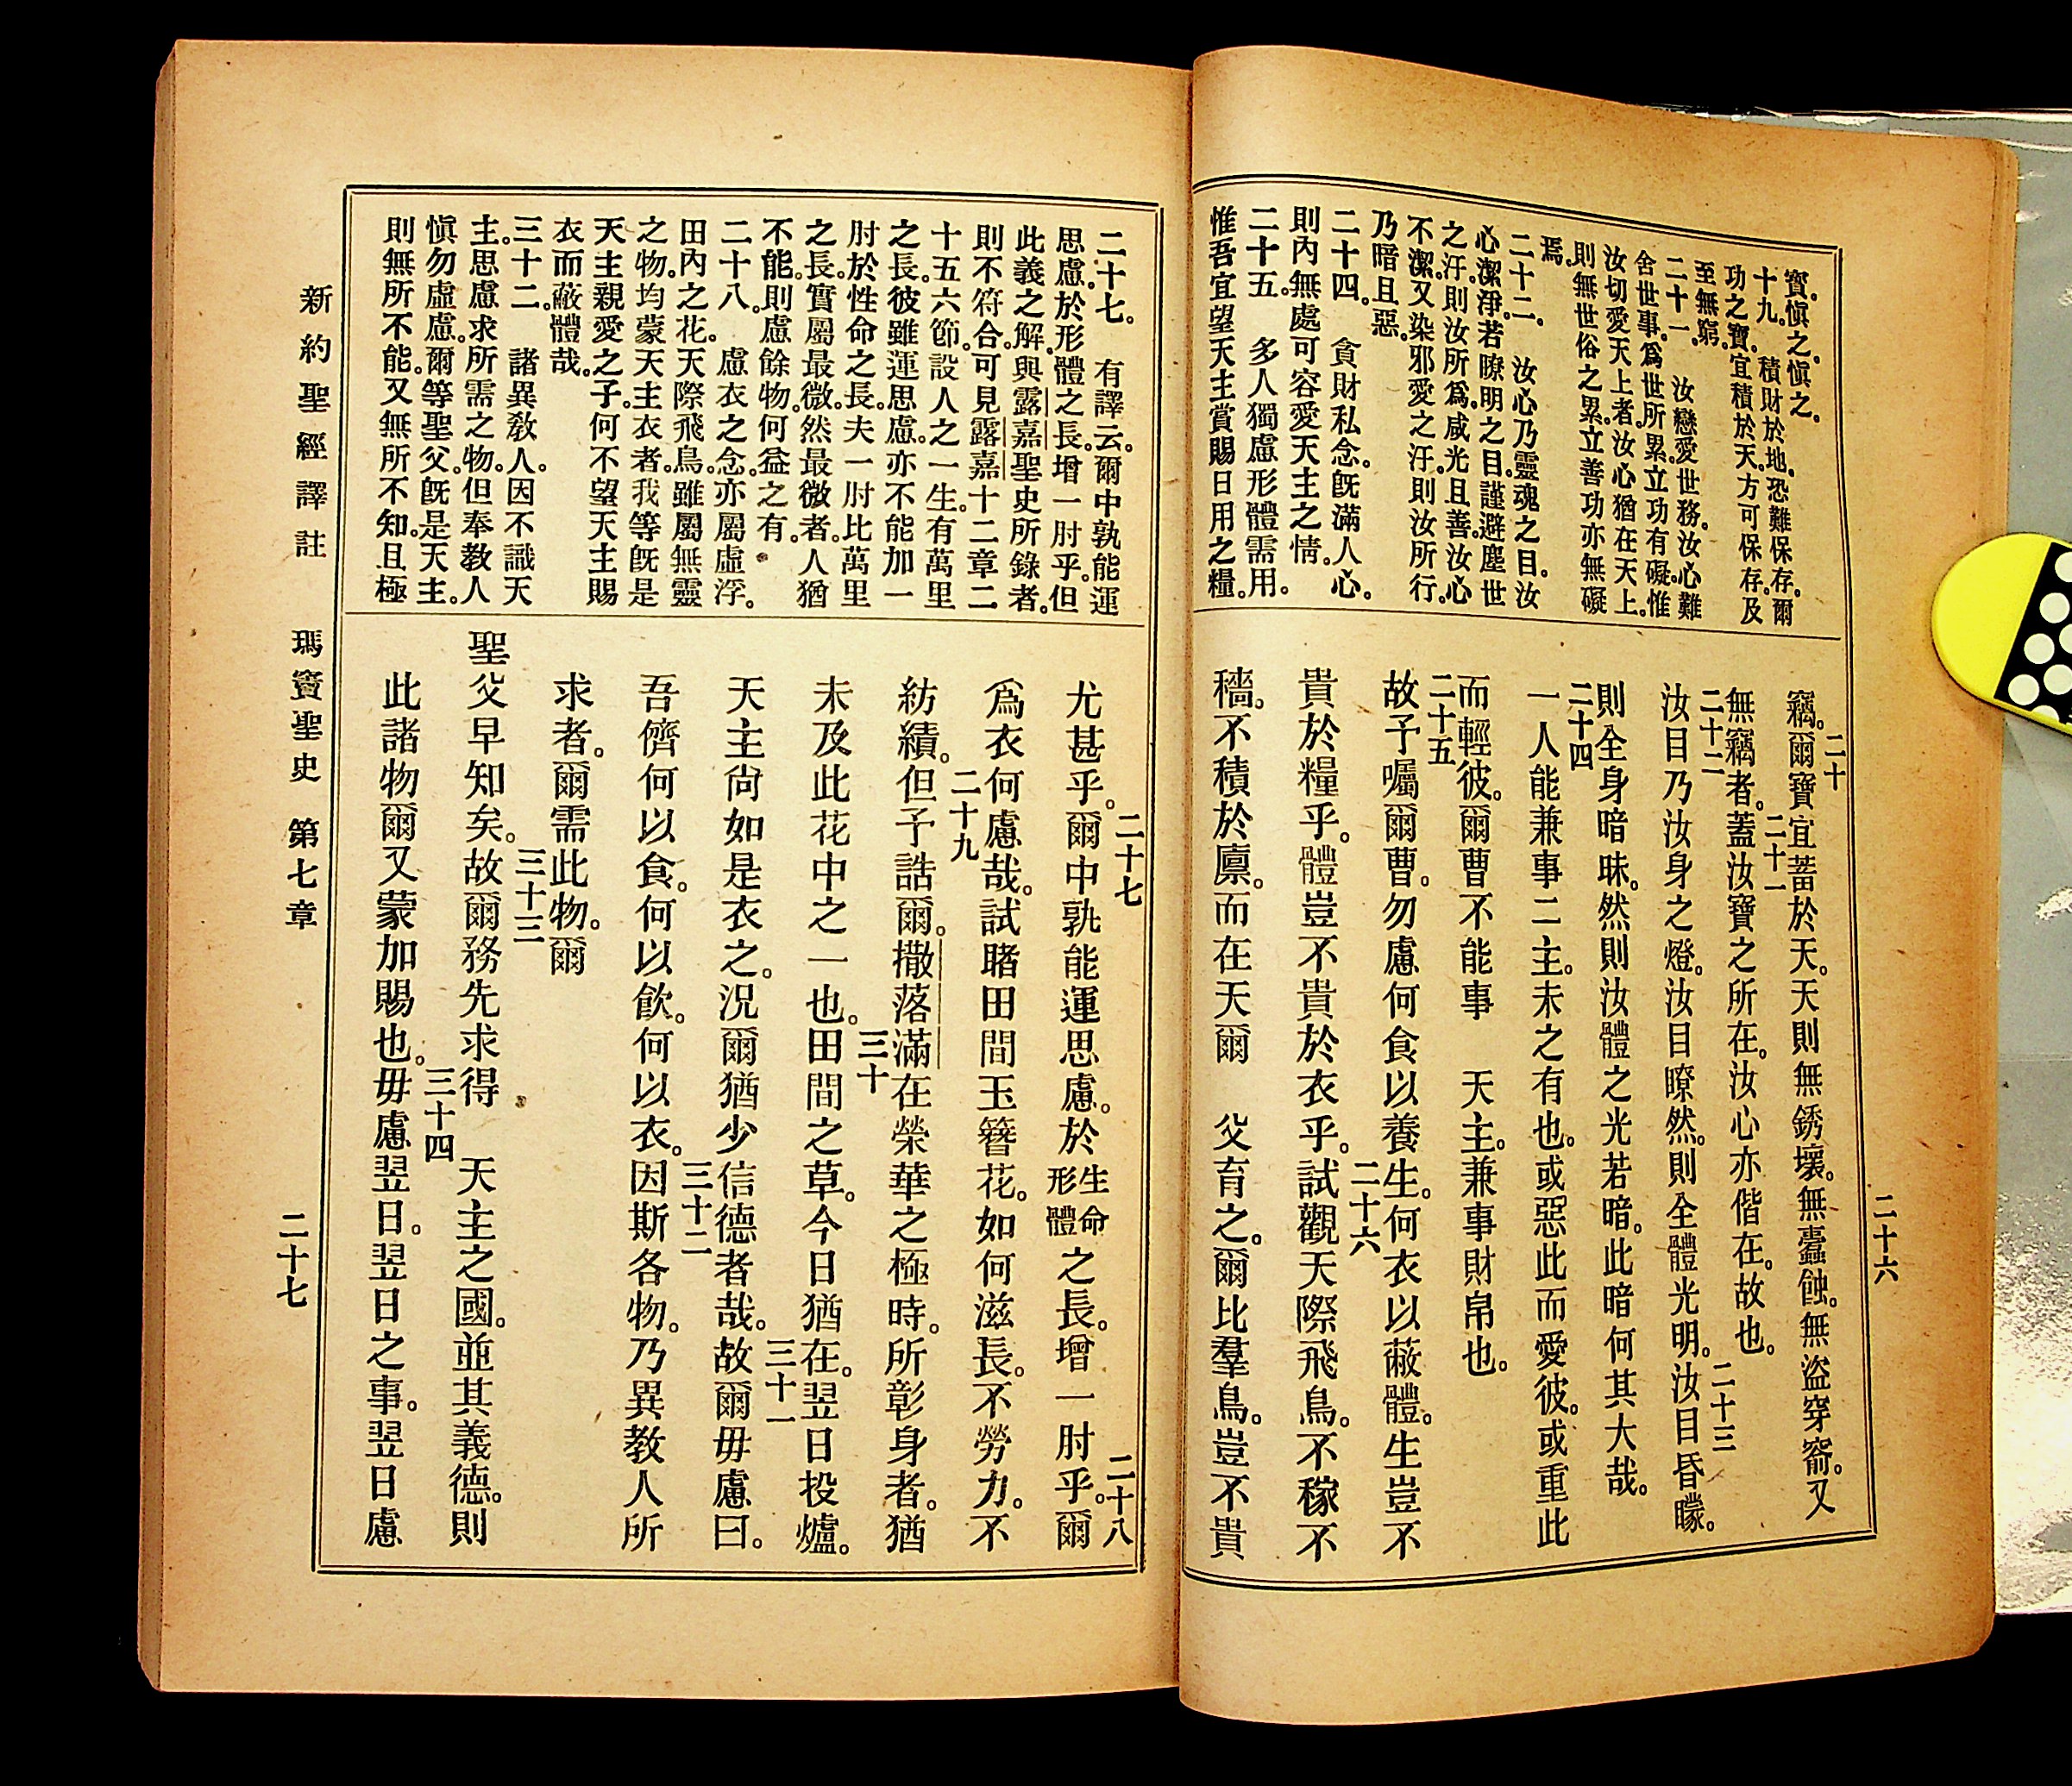 二十六
寳。愼之。愼之。
十九。積財於地。恐難保存。爾
功之寳。宜積於天。方可保存。及
至無窮。
二十一。汝戀愛世務。汝心難
舍世事。爲世所累。立功有礙。惟
汝切愛天上者。汝心猶在天上。
則無世俗之累。立善功亦無礙
焉。
二十二。汝心乃靈魂之目。汝
心潔淨。若瞭明之目。謹避塵世
之汙。則汝所爲。咸光且善。汝心
不潔。又染邪愛之汙。則汝所行。
乃暗且惡。
二十四。貪財私念。旣滿人心。
則內無處可容愛天主之情。
二十五。多人獨慮形體需用。
惟吾宜望天主賞賜日用之糧。
竊。二十爾寶宜蓄於天。天則無銹壞。無蠹蝕。無盜穿窬。又
無竊者。二十一蓋汝寶之所在。汝心亦偕在。故也。
二十二汝目乃汝身之燈。汝目瞭然。則全體光明。二十三汝目昏矇。
則全身暗昧。然則汝體之光若暗。此暗何其大哉。
二十四一人能兼事二主。未之有也。或惡此而愛彼。或重此
而輕彼。爾曹不能事 天主。兼事財帛也。
二十五故予囑爾曹。勿慮何食以養生。何衣以蔽體。生豈不
貴於糧乎。體豈不貴於衣乎。二十六試觀天際飛鳥。不稼不
穡。不積於廩。而在天爾 父育之。爾比羣鳥。豈不貴
二十七。有譯云。爾中孰能運
思慮。於形體之長。增一肘乎。但
此義之解。與露嘉聖史所錄者。
則不符合。可見露嘉十二章二
十五六節。設人之一生。有萬里
之長。彼雖運思慮。亦不能加一
肘於性命之長。夫一肘比萬里
之長。實屬最微。然最微者。人猶
不能。則慮餘物。何益之有。
二十八。慮衣之念。亦屬虛浮。
田內之花。天際飛鳥。雖屬無靈
之物。均蒙天主衣者。我等旣是
天主親愛之子。何不望天主賜
衣而蔽體哉。
三十二。諸異敎人。因不識天
主。思慮求所需之物。但奉敎人
愼勿虛慮。爾等聖父。旣是天主。
則無所不能。又無所不知。且極
尤甚乎。二十七爾中孰能運思慮。於生命形體之長。增一肘乎。二十八爾
爲衣何慮哉。試睹田間玉簪花。如何滋長。不勞力。不
紡績。二十九但予誥爾。撒落滿在榮華之極時。所彰身者。猶
未及此花中之一也。三十田間之草。今日猶在。翌日投爐。
天主尙如是衣之。況爾猶少信德者哉。三十一故爾毋慮曰。
吾儕何以食。何以飮。何以衣。三十二因斯各物。乃異敎人所
求者。爾需此物。爾
聖父早知矣。三十三故爾務先求得 天主之國。並其義德。則
此諸物爾又蒙加賜也。三十四毋慮翌日。翌日之事。翌日慮
新約聖經譯註 瑪竇聖史 第七章 二十七